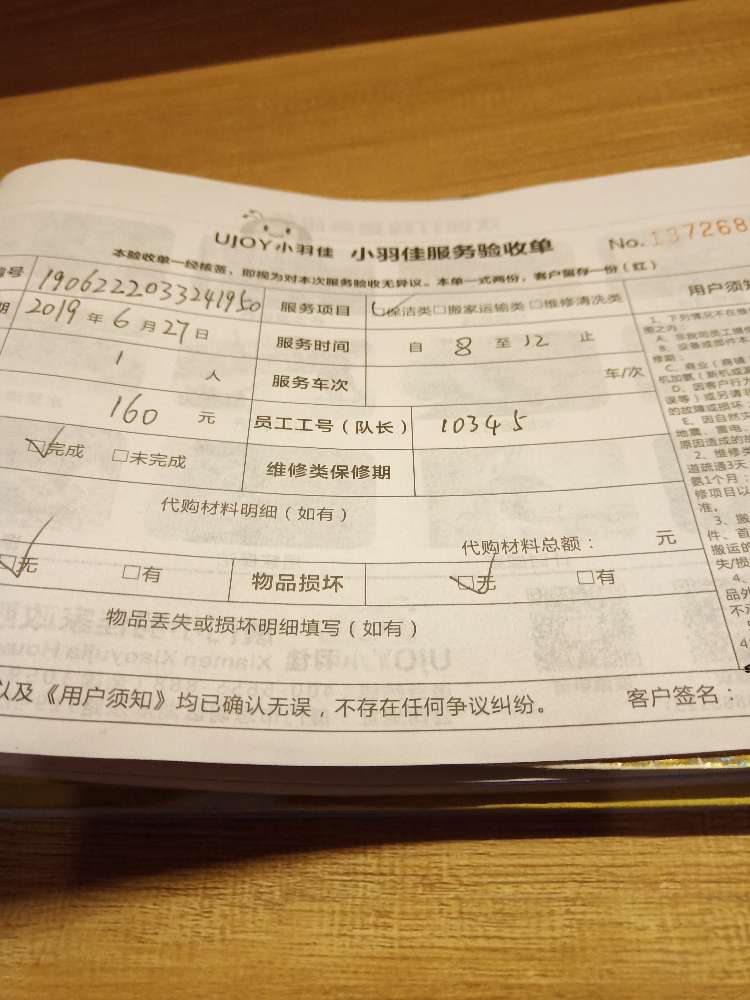 UJOY小羽佳 小羽佳服务验收单 No.137268
本验收单一经核签，即视为对本次服务验收无异议。本单一式两份，客户留存一份（红）
号 1906222033241950 服务项目 ☑保洁类□搬家运输类□维修清洗类
期 2019年6月27日 服务时间 自 8 至 12 止
1 人 服务车次 车/次
160 元 员工工号（队长） 10345
☑完成 □未完成 维修类保修期
代购材料明细（如有）
代购材料总额： 元
☑无 □有 物品损坏 ☑无 □有
物品丢失或损坏明细填写（如有）
以及《用户须知》均已确认无误，不存在任何争议纠纷。 客户签名：
用户须知
1、下列情况不在维
围之内：
A、非我司员工维
B、设备或部件本
修期；
C、商业（商铺
机加氨（新机或漏
D、因客户行为
误等）或另请
的故障或损坏；
E、因自然灾
地震、雷电、
原因造成的
2、维修类
道疏通3天
氨1个月；
修项目以
准。
3、搬
件、首
搬运的
失/损
4、
品外
不